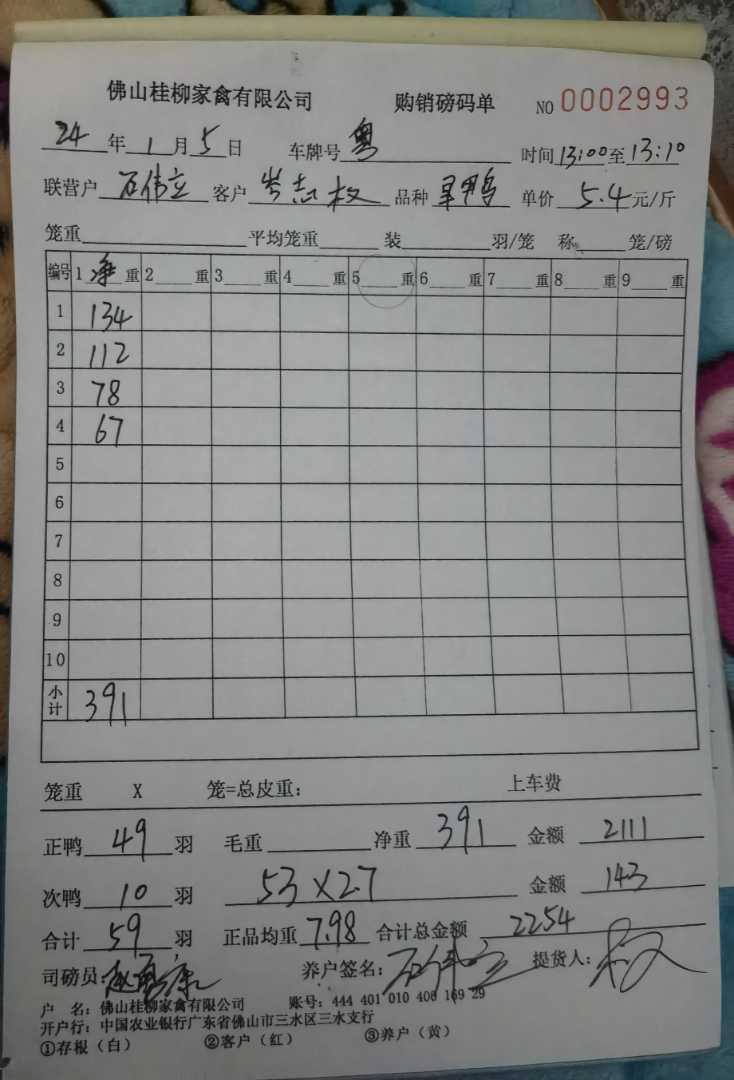 佛山桂柳家禽有限公司 购销磅码单 NO 0002993
24年1月5日 车牌号 粤 时间 13:00至13:10
联营户 石伟立 客户 岑志权 品种 旱鸭 单价 5.4元/斤
笼重 平均笼重 装 羽/笼 称 笼/磅
编号 1净重 2 重 3 重 4 重 5 重 6 重 7 重 8 重 9 重
1 134
2 112
3 78
4 67
5
6
7
8
9
10
小计 391
笼重 X 笼=总皮重: 上车费
正鸭 49 羽 毛重 净重 391 金额 2111
次鸭 10 羽 53×27 金额 143
合计 59 羽 正品均重 7.98 合计总金额 2254
司磅员: 养户签名: 石伟立 提货人: 权
户 名: 佛山桂柳家禽有限公司 账号: 444 401 010 400 169 29
开户行: 中国农业银行广东省佛山市三水区三水支行
①存根(白) ②客户(红) ③养户(黄)